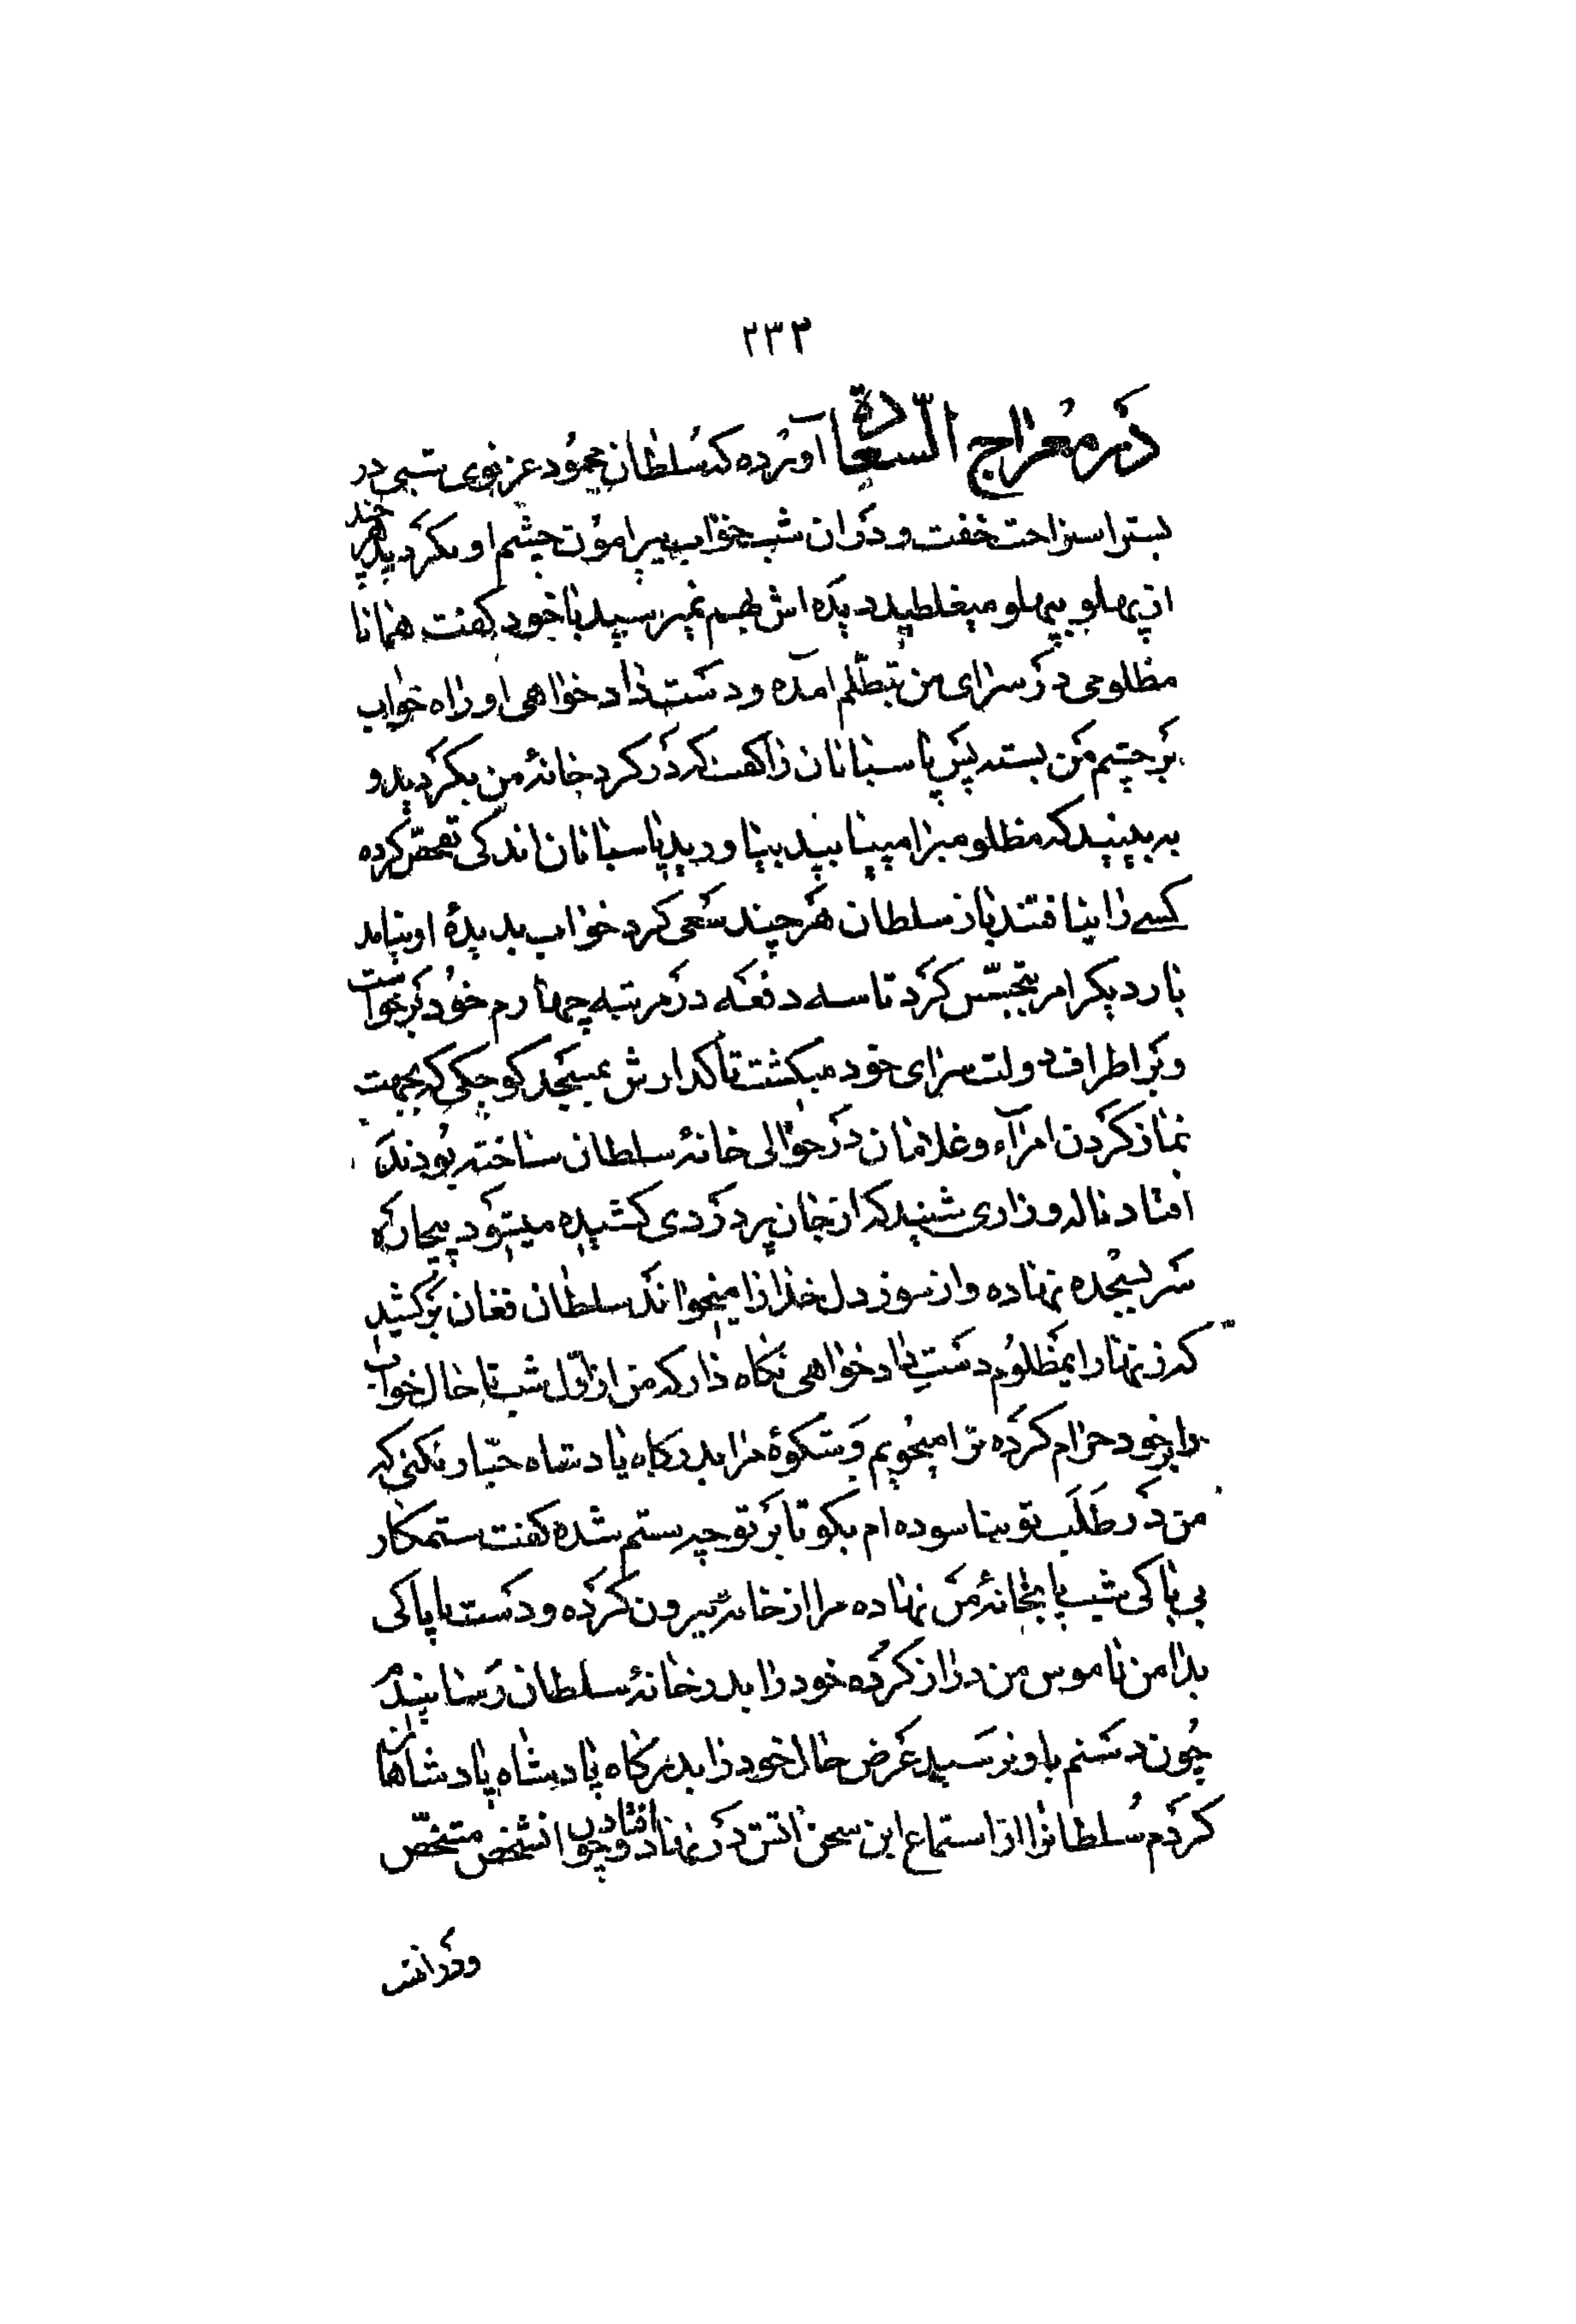 ۲۳۳
در معراج السعادة آورده که سلطان محمود غزنوی شبی در
بستر استراحت خفت و در آن شب خواب پیرامون چشم او نگردید هر چند
از پهلو بپهلو میغلطید دیده اش بهم نمیرسید با خود گفت همانا
مظلومی در سرای من بتظلم آمده و دست داد خواهی او راه خواب
بر چشم من بسته پس پاسبانان را گفت که در گرد خانهٔ من بگردید و
به بینید که مظلومیرا مییابید بیاورید پاسبانان اندکی تفحص کرده
کسے را نیافتند باز سلطان هر چند سعی کرد خواب بدیدهٔ او نیامد
بار دیگر امر بتجسس کرد تا سه دفعه در مرتبه چهارم خود برخواست
و بر اطراف دولت سرای خود میگشت تا گذارش بمسجد کوچکی که بجهت
نماز کردن امراء و غلامان در حوالی خانهٔ سلطان ساخته بودند
افتاد ناله و زاری شنید که از جان پر دردی کشیده میشود بیچاره
سر بسجده نهاده و از سوز دل خدا را میخواند سلطان فغان برکشید
که زنهار ایمظلوم دست داد خواهی نگاه دار که من از اول شب تا حال خواب
را بر خود حرام کرده ترا میجویم و شکوهٔ مرا بدرگاه پادشاه جبار نکنی که
من در طلب تو نیاسوده ام بگو تا بر تو چه ستم شده گفت ستمکار
بی باکی شب پا بخانهٔ من نهاده مرا از خانه بیرون کرده و دست ناپاکی
بدامن ناموس من دراز کرده خود را بدر خانهٔ سلطان رسانیدم
چون دستم باو نرسید عرض حال خود را بدرگاه پادشاه پادشاهان
کردم سلطانرا از استماع این سخن اتش در نهاد افتاد و چون انشخص متخص
و در انشب